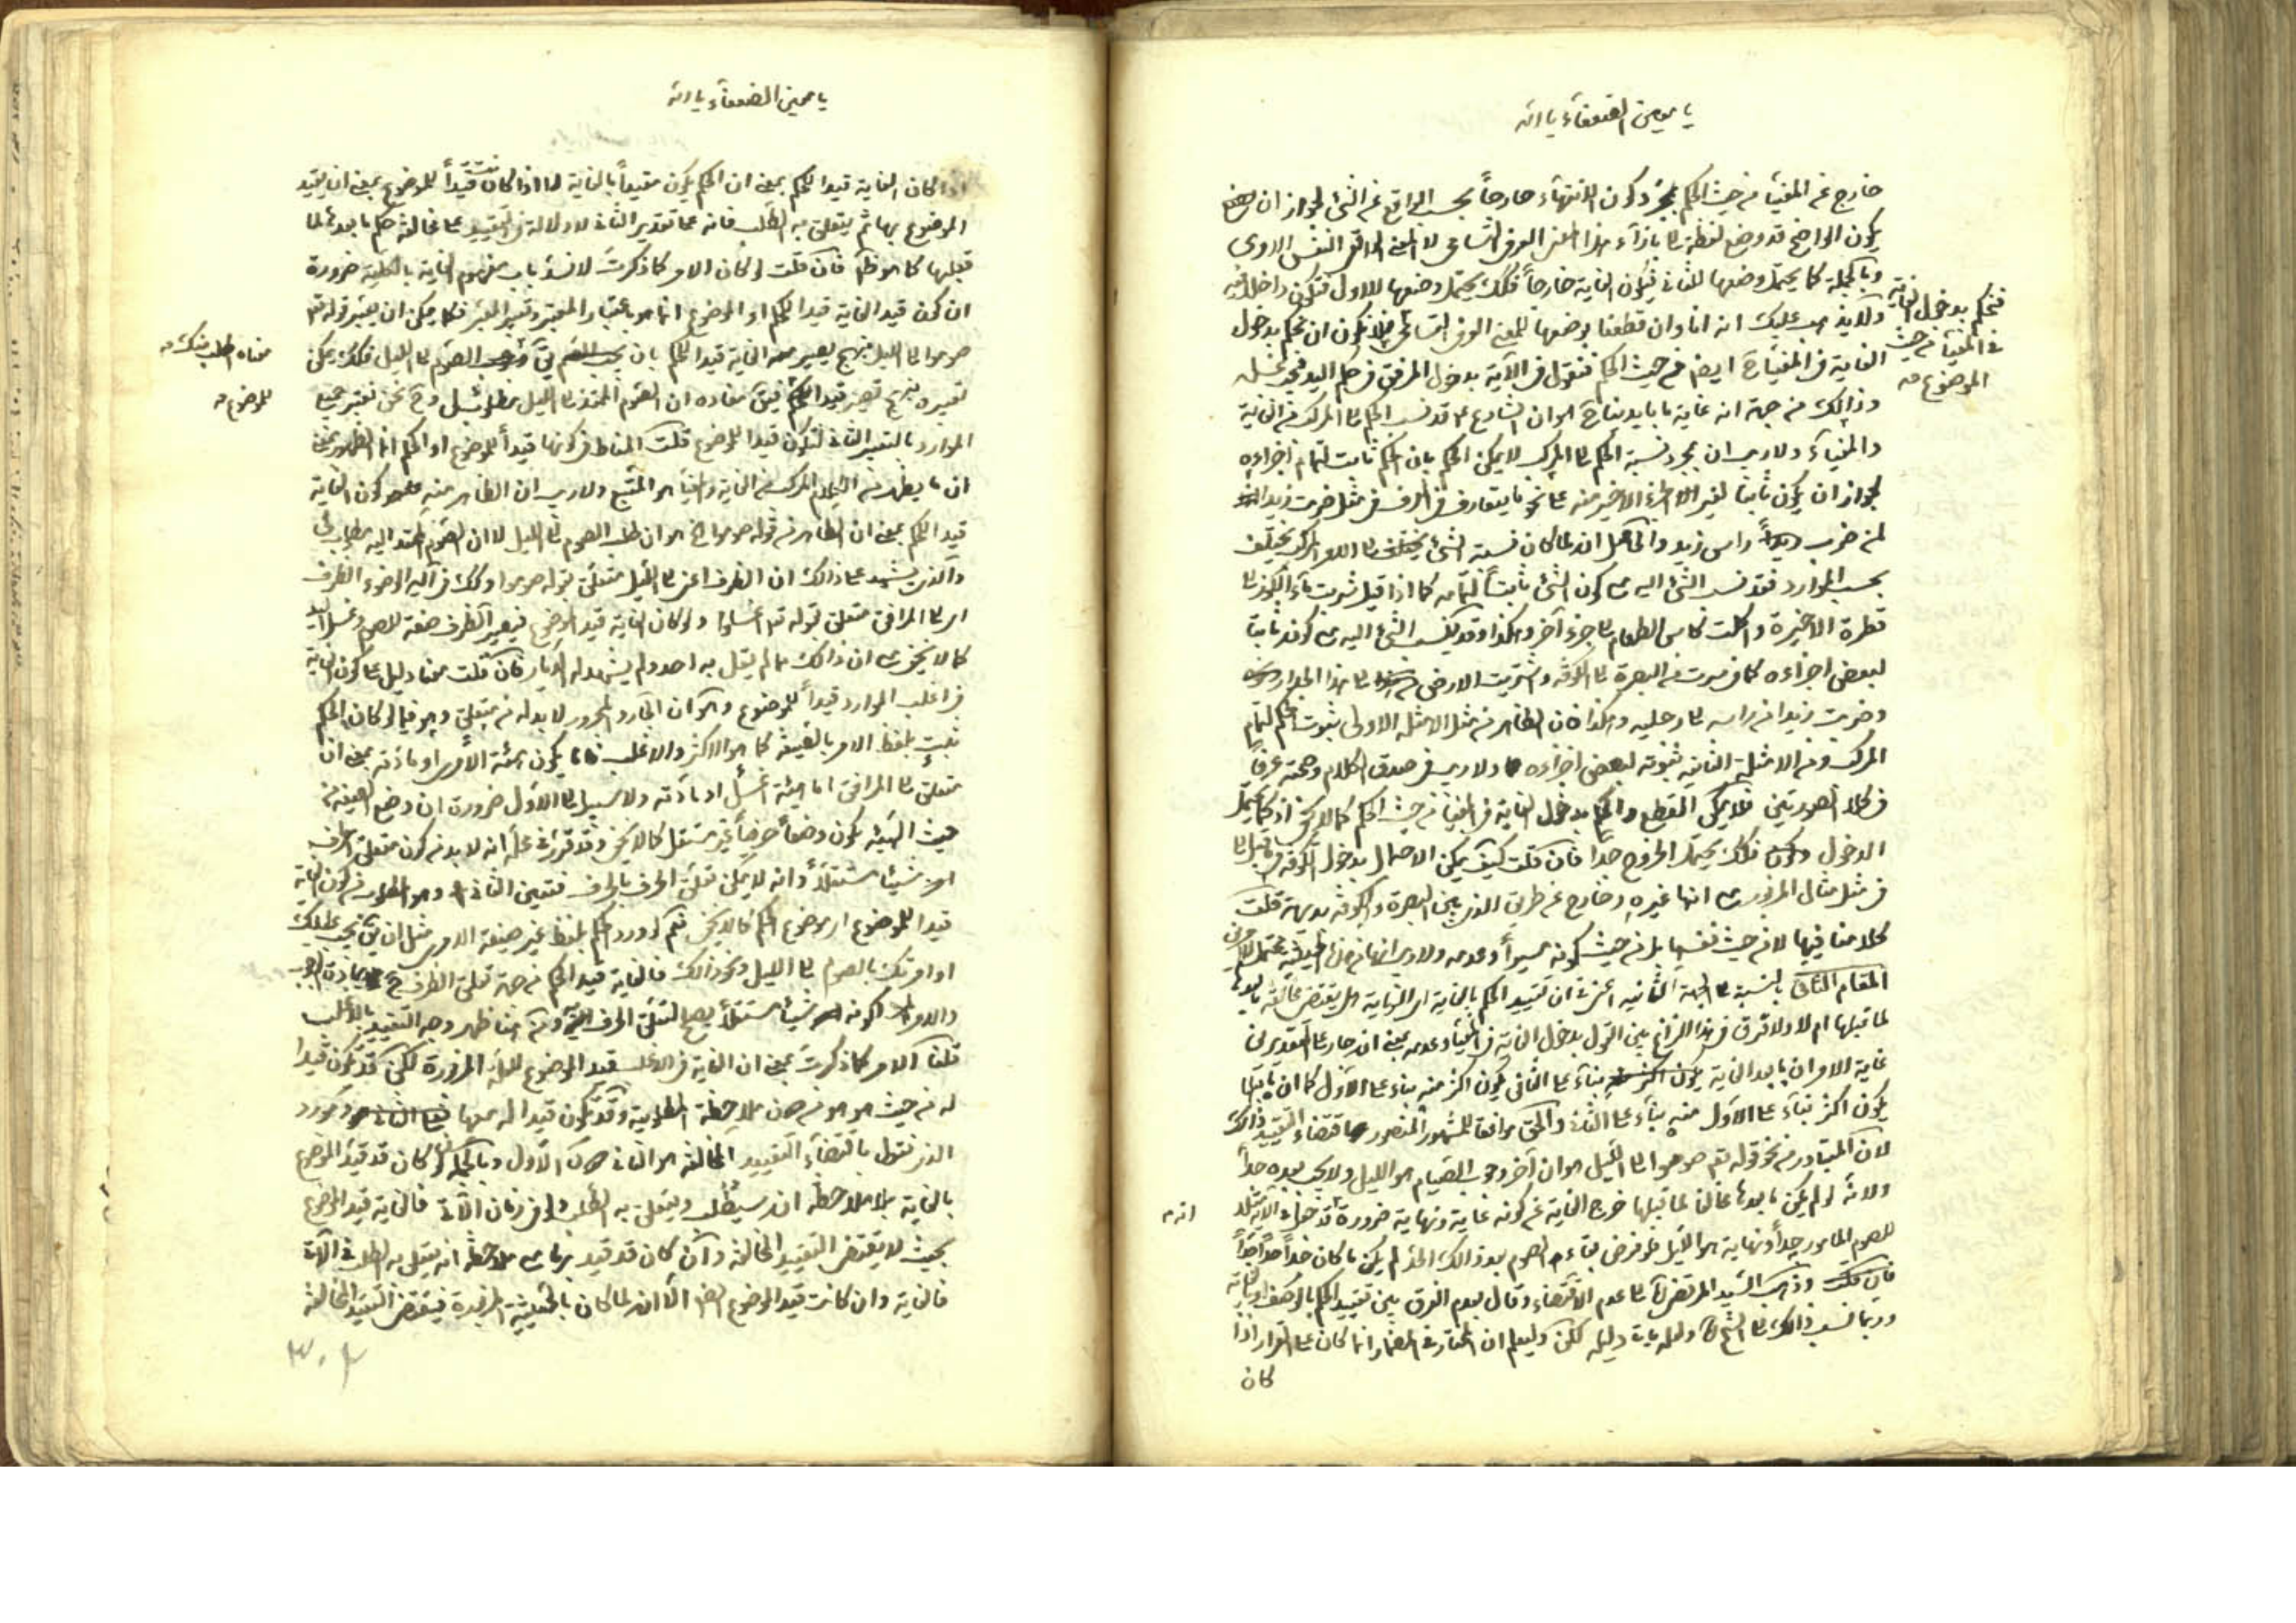 يا معين الضعفاء يا الله
خارج عن المغيّا من حيث الحكم بمجرد كون الانتهاء خارجاً بحسب الواقع عن الشئ لجواز ان
يكون الواضع قد وضع لفظة الى بازآء هذا المعنى العرفى التسامحى لا المعنى الواقع النفس الامرى
وبالجملة كما يحتمل وضعها للثانى فيكون الغاية خارجاً فكك يحتمل وضعها للاول فتكون داخلة فيه
ولا يذهب عليك انه انا وان قطعنا بوضعها للمعنى العرفى التسامحى فلا يكون ان نحكم بدخول
فنحكم بدخول الغاية
فى المغيا من حيث
الموضوع صه
الغاية فى المغيا ح ايضا من حيث الحكم فنقول فى الآية بدخول المرفق فى حكم اليد فيجب غسله
وذالك من جهة انه غاية ما يابد بنا ح هو ان الشارع قد نسب الحكم الى المركب من الغاية
والمغياء ولا ريب ان بمجرد نسبة الحكم الى المركب لا يمكن الحكم بان الحكم ثابت لتمام اجزاءه
لجواز ان يكون ثابتا لغير الجزء الاخير منه على نحو ما يتعارف فى العرف فى مثل ضربت زيدا
لمن ضرب راس زيد والحاصل انه لما كان نسبة الشئ الى الامر المركب يختلف
بحسب الموارد فقد نسب الشئ اليه مع كون الشئ ثابتاً لتمامه كما اذا قيل شربت ماء الكوز الى
قطرة الاخيرة واكلت كاس الطعام الى جزء آخر وهكذا وقد ينسب الشئ اليه مع كونه ثابتا
لبعض اجزاءه كما فى سرت من البصرة الى الكوفه واشتريت الارض من الى هذا الجدار
وضربت زيدا من راسه الى رجليه وهكذا فان الظاهر من مثل الامثلة الاولى ثبوت الحكم لتمام
المركب ومن الامثلة الثانية ثبوته لبعض اجزاءه ولا ريب فى صدق الكلام وصحته عرفاً
فى كلا الصورتين فلا يمكن القطع والحكم بدخول الغاية فى المغيا من حيث الحكم كما لا يخفى اذ كما يحتمل
الدخول فكك يحتمل الخروج جدا فان قلت كيف يمكن الاحتمال بدخول الكوفه فيما قبل الى
فى مثل مثال المزبور مع انها غيره وخارج عن طريق الذى بين البصرة والكوفه بديهة قلت
كلامنا فيها لا من حيث نفسها بل من حيث كونه مسيراً وعدمه ولا ريب انها من هذه الحيثية محتمل للامرين
المقام الثانى بالنسبة الى الجهة الثانيه اعنى ان تقييد الحكم بالغاية اى النهاية هل يقتضى مخالفة ما بعدها
لما قبلها ام لا ولا فرق فى هذا النزاع بين القول بدخول الغاية فى المغيا وعدمه بمعنى انه جار على التقديرين
غاية الامر ان ما بعد الغاية بناء على الثانى يكون اكثر منه بناء على الاول كما ان ما قبلها
يكون اكثر بناء على الاول منه بناء على الثانى والحق موافقا للمشهور المنصور اقتضاء التقييد ذالك
لان المتبادر من نحو قوله تعم صوموا الى الليل هو ان آخر وجوب الصيام هو الليل ولا يجب بعده جداً
ولانه لو لم يكن ما بعدها مخالفا لما قبلها خرج الغاية عن كونه غاية ونهاية ضرورة
انه م
للصوم المامور جداً ونهاية هو الليل فلو فرض بقاء الصوم بعد ذالك الحد لم يكن ما كان حداً حداً جداً
وذهب السيد المرتضى الى عدم الاقتضاء وقال بعدم الفرق بين تقييد الحكم بالوصف او بالغاية
وربما نسب ذالك الى الشيخ ولعله يات دليله لكن وليعلم ان المختار فى المضمار انما كان على القرار اذا
كان
يا معين الضعفاء يا الله
اذا كان الغاية قيدا للحكم بمعنى ان الحكم يكون مقيداً بالغاية لا اذا كانت قيداً للموضوع بمعنى ان يقيد
الموضوع بها ثم يتعلق به الطلب فانه على تقدير الثانى لا دلالة فى التقييد على مخالفة حكم ما بعدها لما
قبلها كما هو ظاهر فان قلت لو كان الامر كما ذكرت لانسد باب مفهوم الغاية بالكلية ضرورة
ان كون قيد الغاية قيدا للحكم او الموضوع انما هو باعتبار المعتبر وتعبير المعبر فكما يمكن ان يعتبر قوله تعم
صوموا الى الليل بنهج يصير معه الغاية قيدا للحكم بان يق الصوم الى الليل فكك يمكن
معناه اطلب منك صه
تعبيره بنهج تصير قيدا فيق مفاده ان الصوم الممتد الى الليل مطلوبى وح نحن نعتبر جميع
للموضوع صه
الموارد بالتعبير الثانى لتكون قيدا للموضوع قلت المناط فى كونها قيداً للموضوع او الحكم انما الظهور بمعنى
ان ما يظهر من الكلام المركب من الغاية والمغيا هو المتبع ولا ريب ان الظاهر منه كون الغاية
قيدا للحكم بمعنى ان الظاهر من قوله صوموا الخ هو ان طلب الصوم الى الليل لا ان الصوم الممتد اليه مطلوبى
والذى يشهد على ذالك ان الظرف اعنى الى الليل متعلق بقوله صوموا وكك فى آية الوضوء الظرف
اى الى المرافق متعلق بقوله تعم اغسلوا ولو كان الغاية قيد الموضوع فيصير الظرف صفة للصوم وغسل اليد
كما لا يخفى مع ان ذالك مما لم يقل به احد ولم يشهد له الآثار فان قلت هنا دليل على كون الغاية
فى اغلب الموارد قيداً للموضوع وهو ان الجار والمجرور لا بد له من متعلق وهو فيما لو كان الحكم
ثبت بلفظ الامر بالصيغة كما هو الاكثر والاغلب فاما يكون هيئة الامر او مادته بمعنى ان
متعلق الى المرافق اما هيئة اغسل او مادته ولا سبيل الى الاول ضرورة ان وضع الصيغة من
حيث الهيئة يكون وضعاً حرفياً غير مستقل كما لا يخفى وقد تقرر فى محله انه لا بد من كون متعلق الحرف
امرا شيئا مستقلاً وانه لا يمكن تعلق الحرف بالحرف فتعين الثانى وهو المطلوب من كون الغاية
قيدا للموضوع اى موضوع الحكم كما لا يخفى نعم لو ورد الحكم بلفظ غير صيغة الامر مثل ان يق يجب عليك
او امرتك بالصوم الى الليل ونحو ذالك فالغاية قيد الحكم من جهة تعلق الظرف ح بمادة الوجوب
والامر لكونه شيئا مستقلاً يصح لتعلق الحرف ومن هنا ظهر وجه التقييد بالاغلب
قلنا الامر كما ذكرت بمعنى ان الغاية فى الاغلب قيد الموضوع للعلة المزبورة لكن قد تكون قيدا
له من حيث هو هو من دون ملاحظة المطلوبية وقد تكون قيدا له معها
الذى نقول باقتضاء التقييد المخالفة هو الثانى دون الاول وبالجملة لو كان قد قيد الموضوع
بالغاية بلا ملاحظة انه سيطلب ويتعلق به الطلب فى زمان الآتى فالغاية قيد الموضوع
بحيث لا يقتضى التقييد المخالفة وان كان قد قيد بها مع ملاحظة انه يتعلق به الطلب فى الآتى
فالغاية وان كانت قيد الموضوع ايضا الا انه لما كان بالحيثية المزبورة فيقتضى التقييد المخالفة